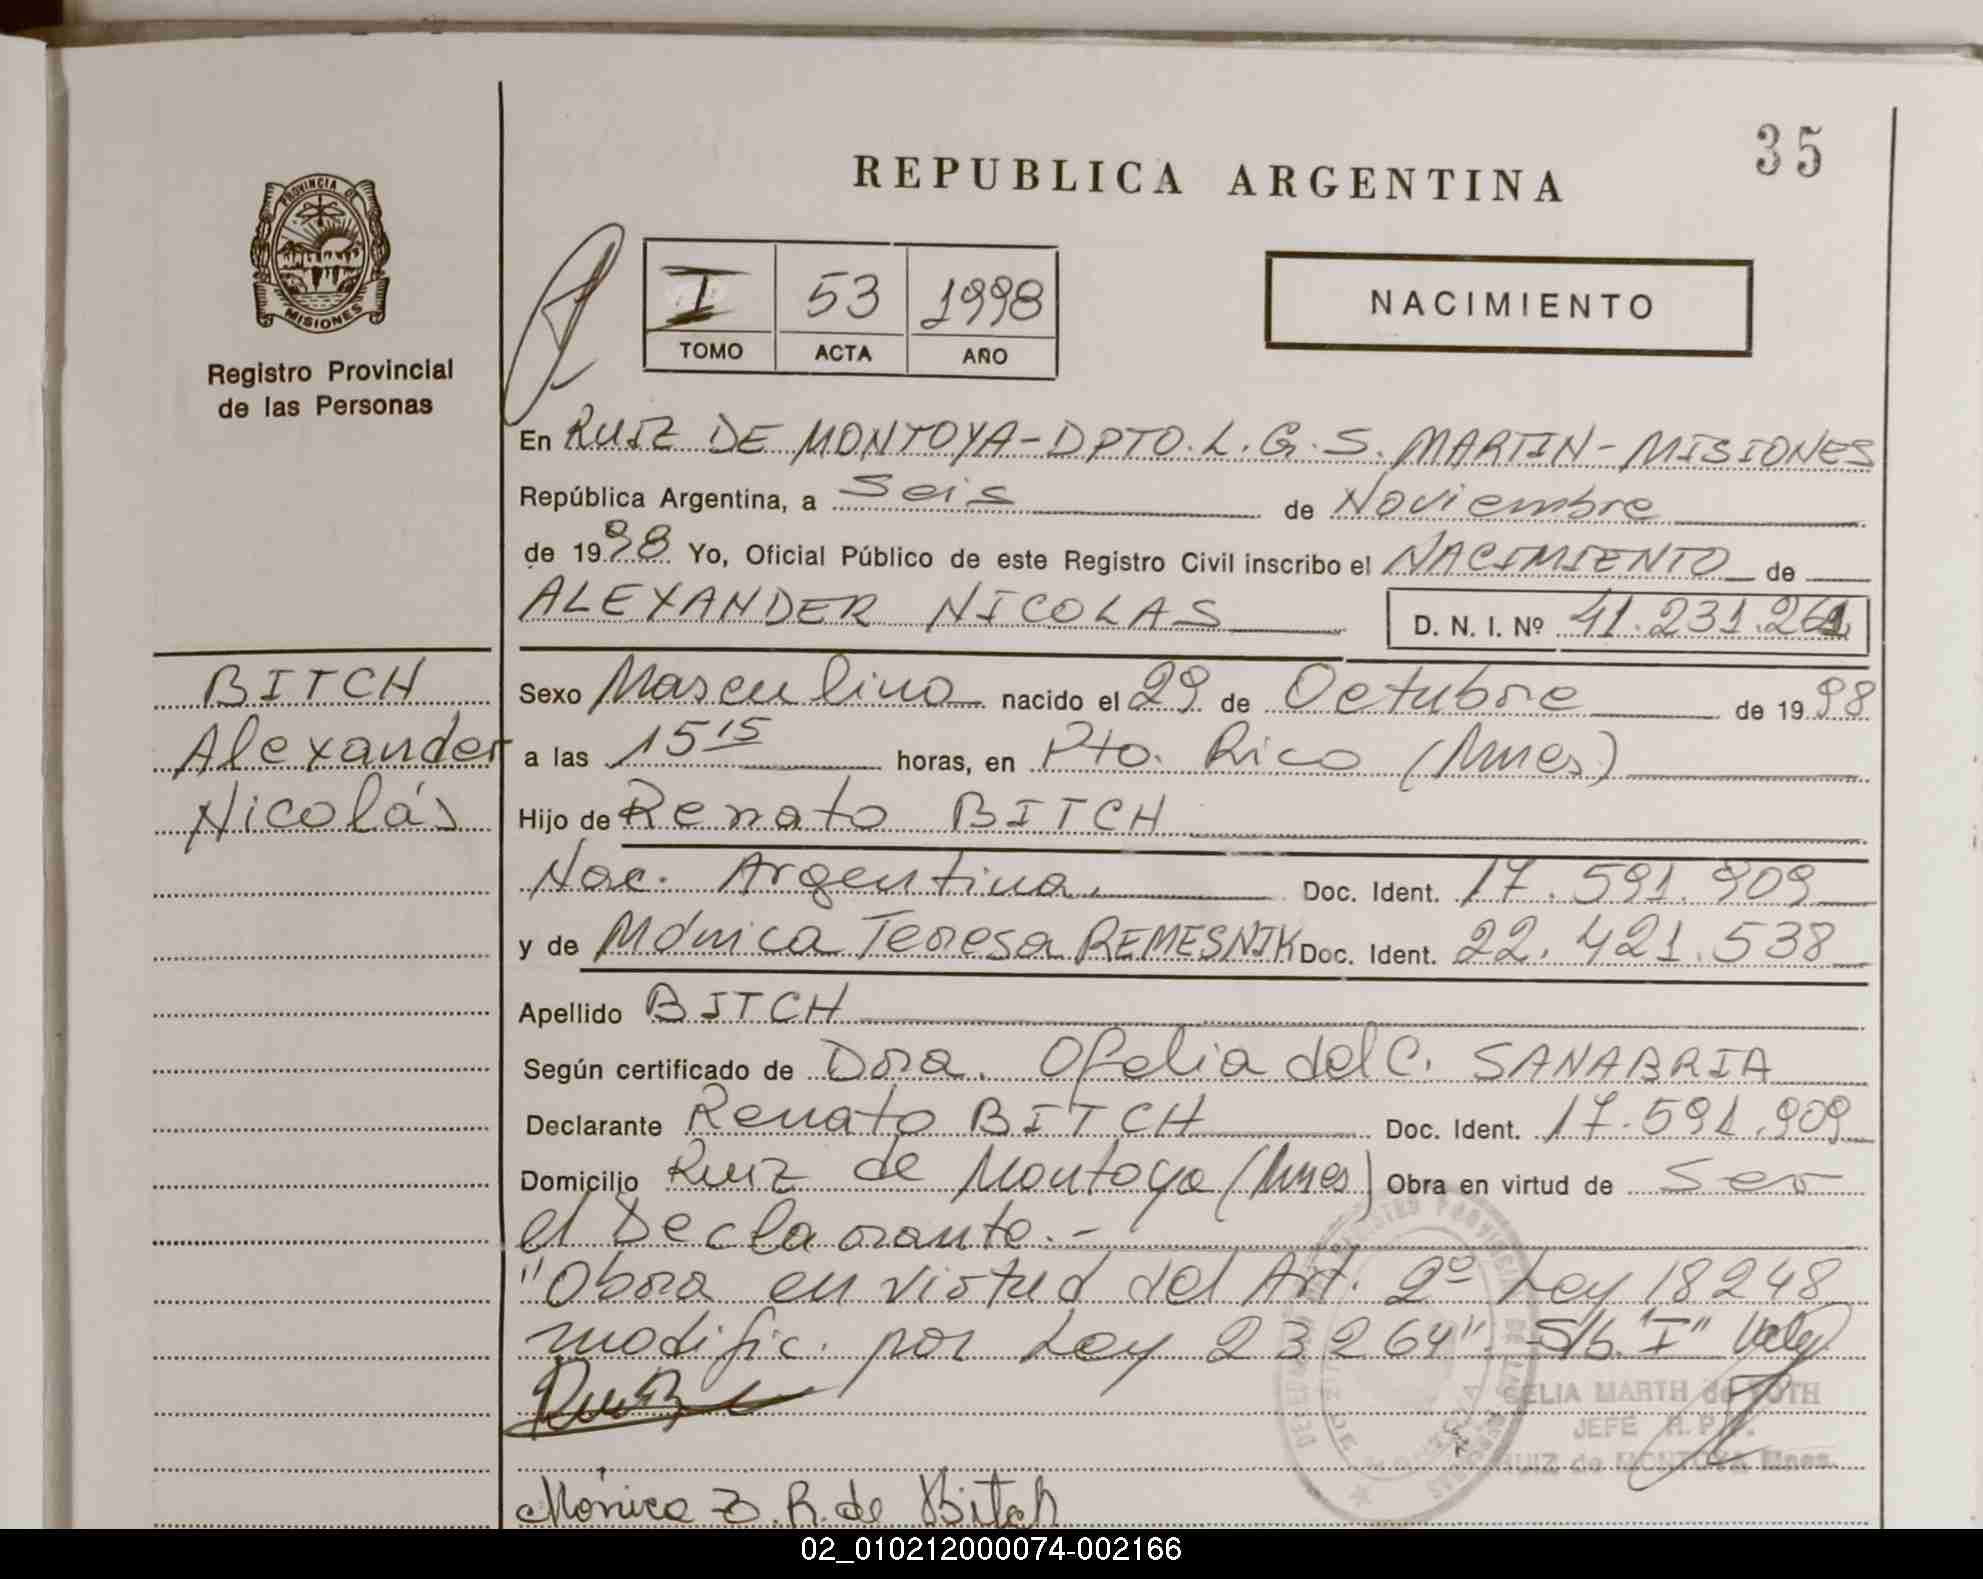 35
REPUBLICA ARGENTINA
PROVINCIA DE
MISIONES
Registro Provincial
de las Personas
I 53 1998
TOMO ACTA AÑO
NACIMIENTO
En RUIZ DE MONTOYA-DPTO.L.G.S.MARTIN-MISIONES
República Argentina, a Seis de Noviembre
de 1998 Yo, Oficial Público de este Registro Civil inscribo el NACIMIENTO de
ALEXANDER NICOLAS D. N. I. Nº 41.231.261
BITCH
Alexander
Nicolás
Sexo Masculino nacido el 29 de Octubre de 1998
a las 15 15 horas, en Pto. Rico (Mnes)
Hijo de Renato BITCH
Nac. Argentina. Doc. Ident. 17.591.909
y de Mónica Teresa REMESNIK Doc. Ident. 22.421.538
Apellido BITCH
Según certificado de Dra. Ofelia del C. SANABRIA
Declarante Renato BITCH Doc. Ident. 17.591.909
Domicilio Ruiz de Montoya (Mnes) Obra en virtud de ser
el Declarante.-
"Obra en virtud del Art. 2º Ley 18248
modific. por Ley 23264" S/b. "I" Vale
CELIA MARTH de ROTH
JEFE R.P.P.
RUIZ de MONTOYA Mnes.
Mónica R. de Bitch
02_010212000074-002166